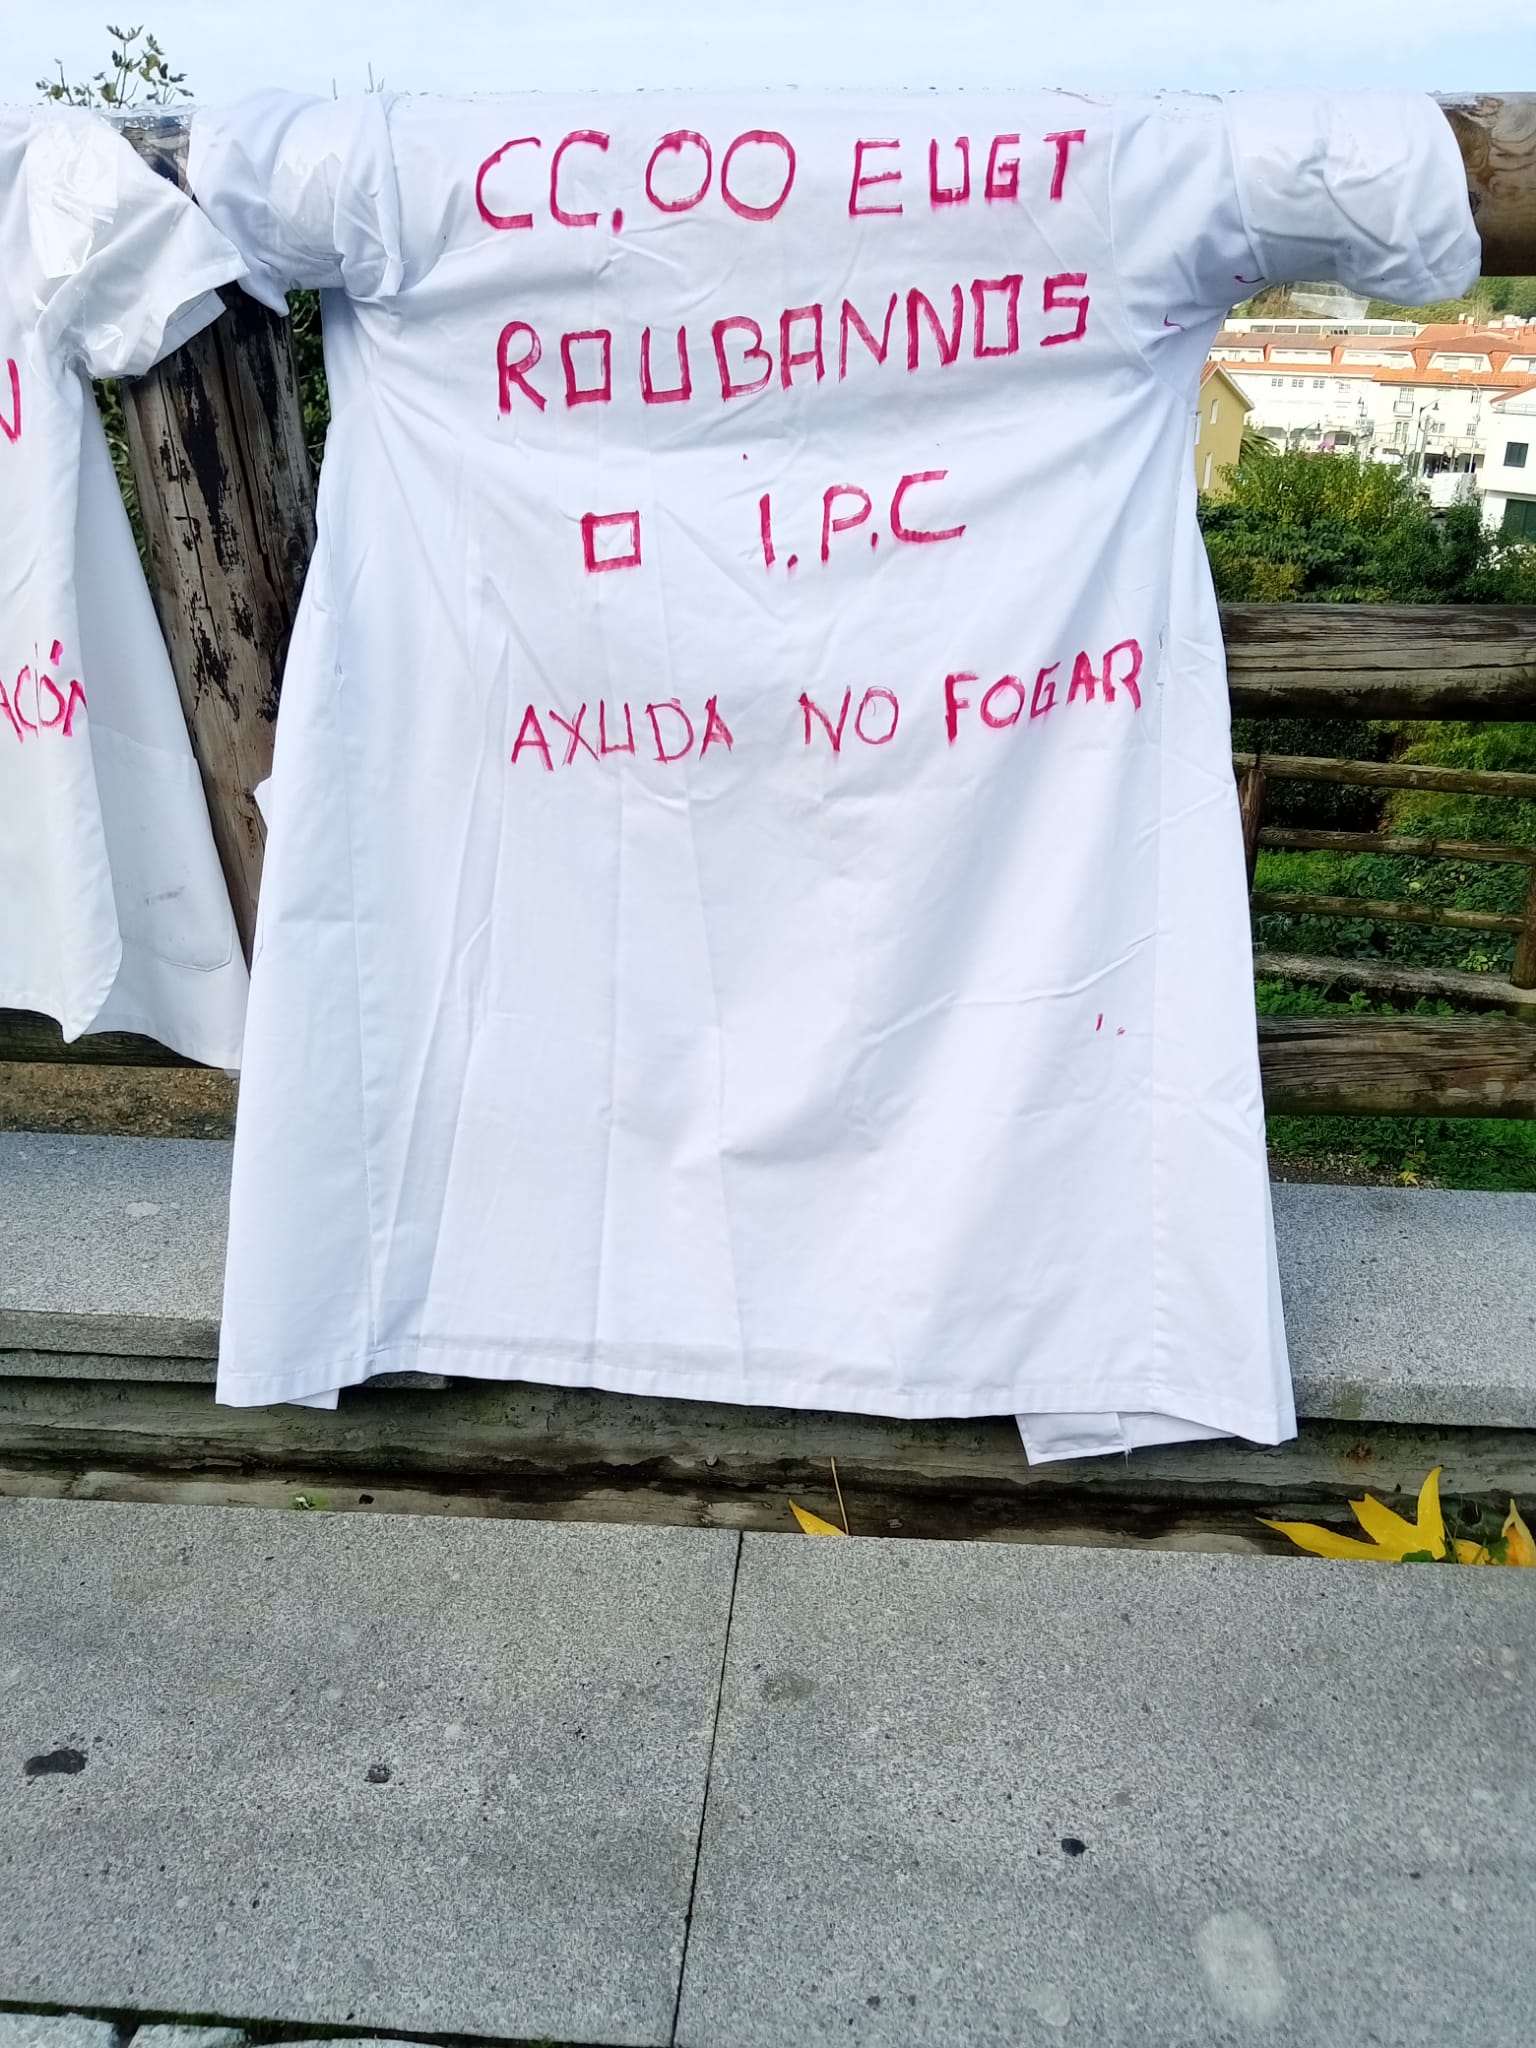 CC.OO E UGT
ROUBANNOS
O I.P.C
AXUDA NO FOGAR